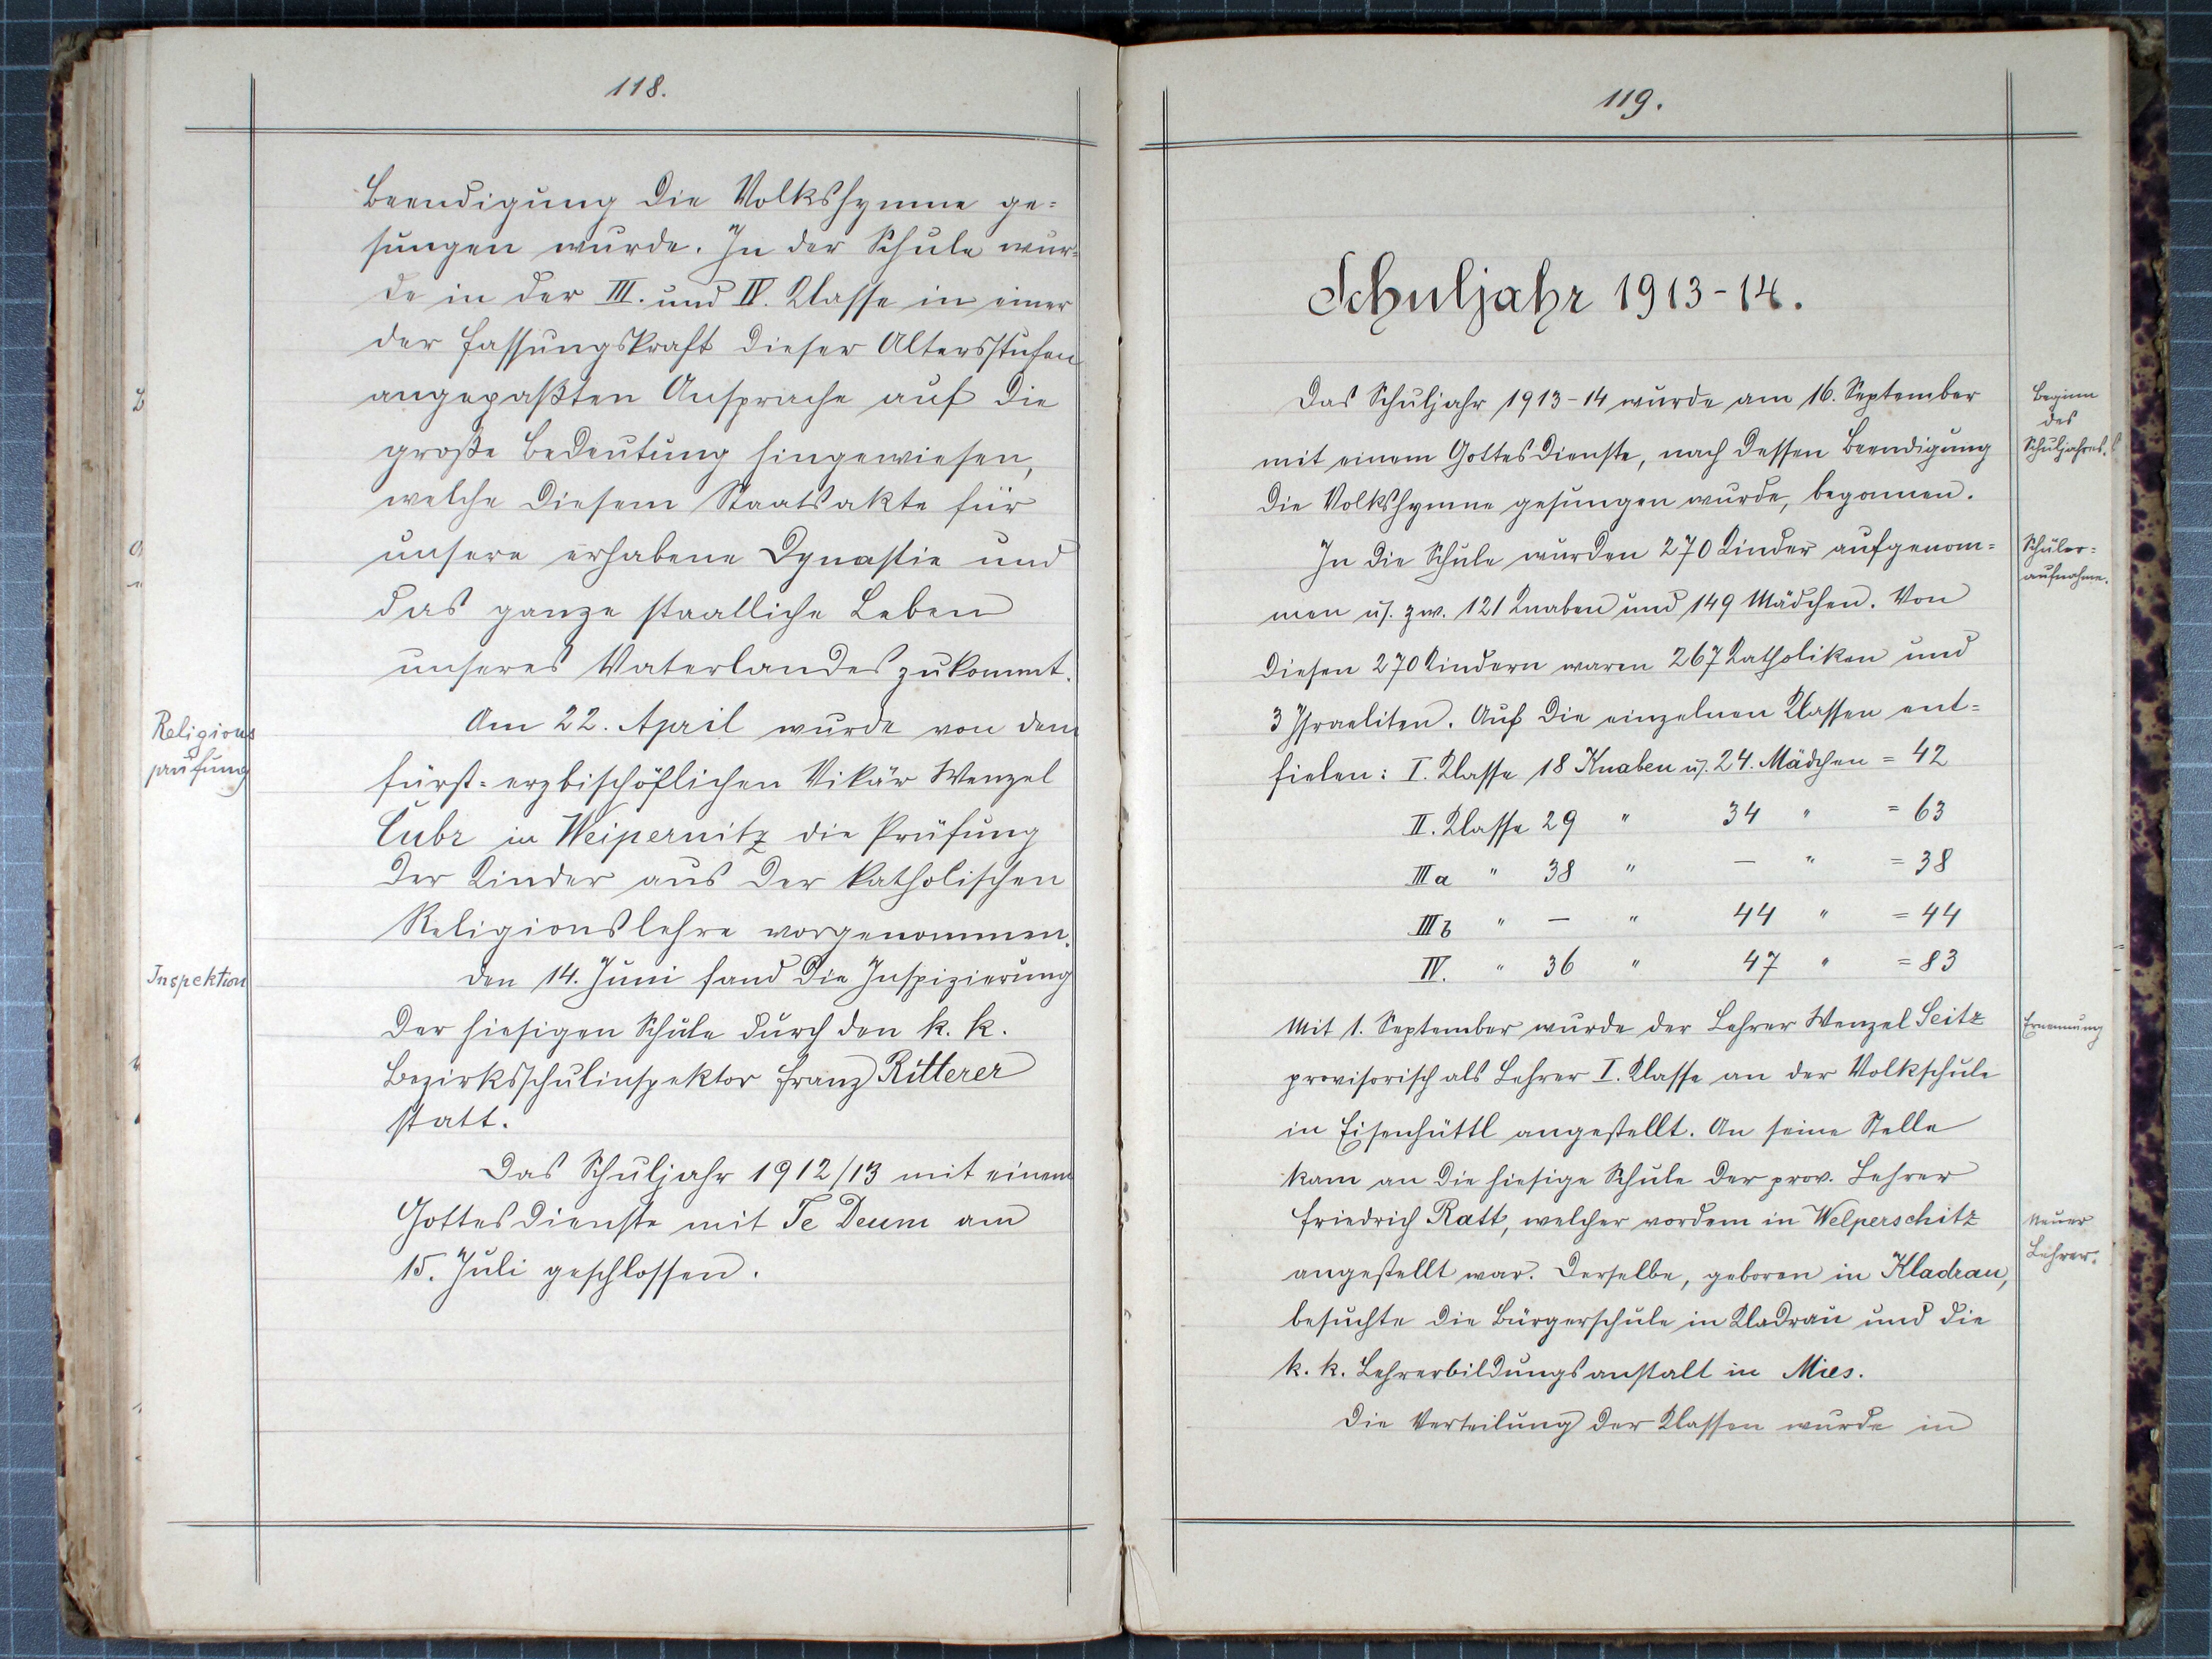 118.
Beendigung die Volkshymne ge=
sungen wurde. In der Schule wur=
de in der III. und IV. Klasse in einer
der Fassungskraft dieser Altersstufen
angepaßten Ansprache auf die
große Bedeutung hingewiesen,
welche diesem Staatsakte für
unsere erhabene Dynastie und
das ganze staatliche Leben
unseres Vaterlandes zukommt.
Religions
prüfung
Am 22. April wurde von dem
fürst=erzbischöflichen Vikär Wenzel
Cubr in Weipernitz die Prüfung
der Kinder aus der katholischen
Religionslehre vorgenommen.
Inspektion
Den 14. Juni fand die Inspizierung
der hiesigen Schule durch den k. k.
Bezirksschulinspektor Franz Ritterer
statt.
Das Schuljahr 1912/13 mit einem
Gottesdienste mit Te Deum am
15. Juli geschlossen.
119.
Schuljahr 1913-14.
Das Schuljahr 1913-14 wurde am 16. September
mit einem Gottesdienste, nach dessen Beendigung
die Volkshymne gesungen wurde, begonnen.
Beginn
des
Schuljahres.
In die Schule wurden 270 Kinder aufgenom=
men u. zw. 121 Knaben und 149 Mädchen. Von
diesen 270 Kindern waren 267 Katholiken und
3 Israeliten. Auf die einzelnen Klassen ent=
fielen: I. Klasse 18 Knaben u. 24. Mädchen = 42
II. Klasse 29 " 34 " = 63
III a " 38 " — " = 38
III b " — " 44 " = 44
IV. " 36 " 47 " = 83
Schüler=
aufnahme.
Mit 1. September wurde der Lehrer Wenzel Seitz
provisorisch als Lehrer I. Klasse an der Volkschule
in Eisenhüttl angestellt. An seine Stelle
kam an die hiesige Schule der prov. Lehrer
Friedrich Ratt, welcher vordem in Welperschitz
angestellt war. Derselbe, geboren in Kladrau,
besuchte die Bürgerschule in Kladrau und die
k. k. Lehrerbildungsanstalt in Mies.
Ernennung
Neuer
Lehrer.
Die Verteilung der Klassen wurde in